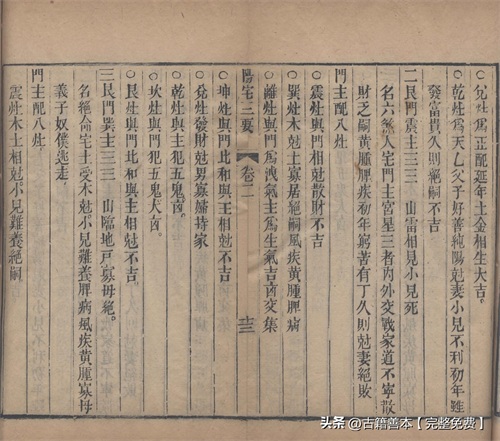 ○兌灶爲正配延年土金相生大吉
○乾灶爲天乙父子好善純陽尅妻小兒不利初年雖
發富貴久則絕嗣不吉
二艮門震主三三　山雷相見小兒死
名六煞人宅門主宮星三者内外交戰家道不寧散
財乏嗣黄腫脾疾初年窮苦有丁久則尅妻絕敗
門主配八灶
○震灶與門相尅散財不吉
○巽灶木尅土寡居絕嗣風疾黄腫脾病
○離灶與門爲洩氣主爲生氣吉凶交集
陽宅三要　卷二　十三
○坤灶與門比和與主相尅不吉
○兌灶發財尅男寡婦持家
○乾灶與主犯五鬼凶
○坎灶與門犯五鬼大凶
○艮灶與門比和與主相尅不吉
三艮門巽主三三　山臨地戸寡母絕
名絕命宅土受木尅小兒難養脾病風疾黄腫寡母
義子奴僕逃走
門主配八灶
震灶木土相尅小兒難養絕嗣
头条@古籍善本【完整免费】